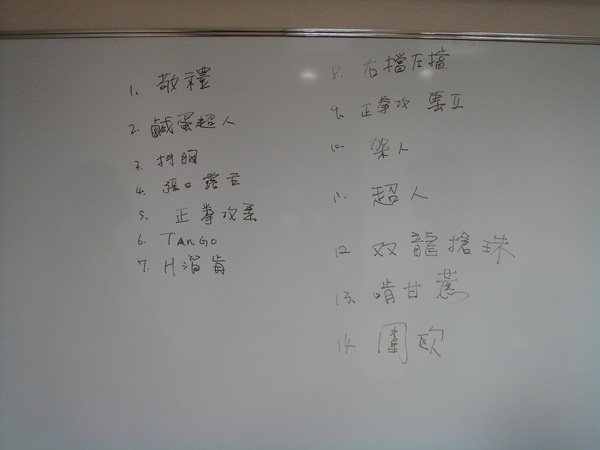 1. 敬禮
2. 鹹蛋超人
3. 抖胸
4.
5. 正拳攻擊
6. TANGO
7. H
8. 右擋左擋
9. 正拳攻
10. 架人
11. 超人
12. 双龍搶珠
13. 啃甘蔗
14. 圍歐